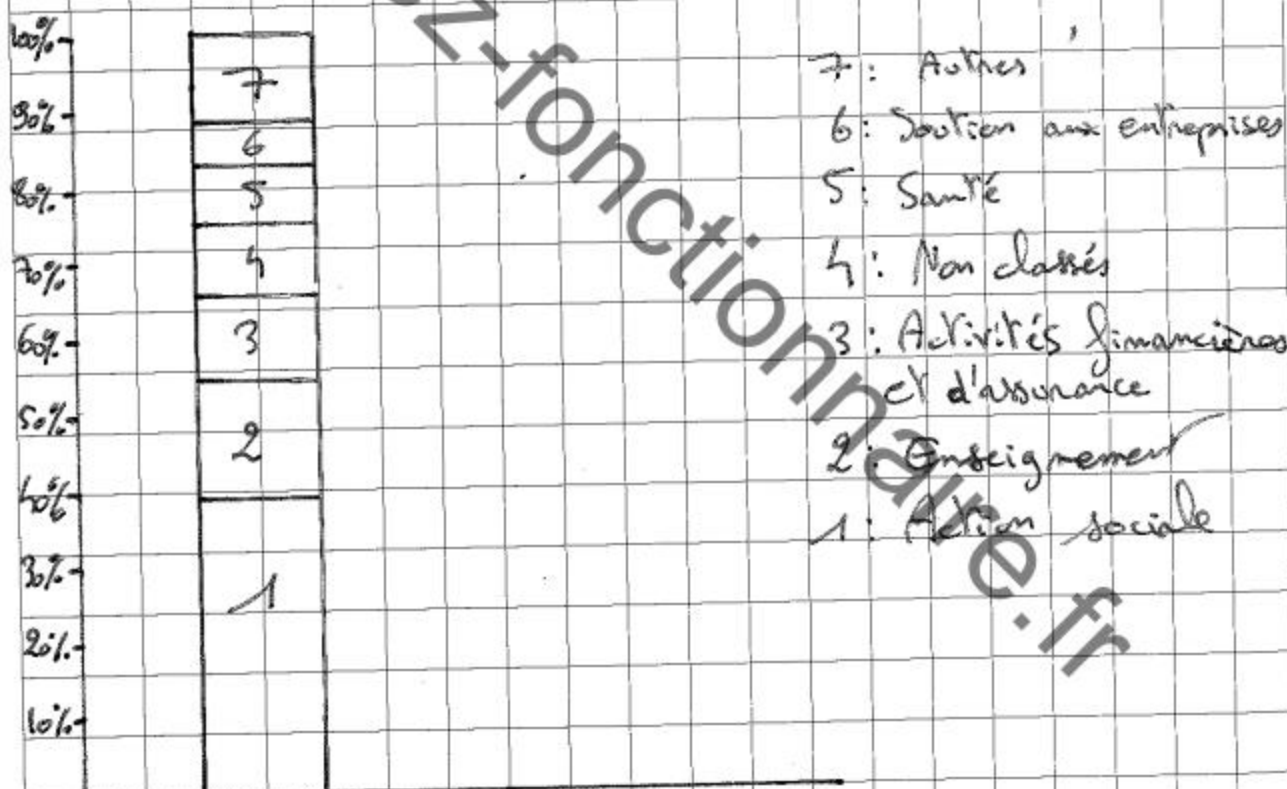 100%
90%
80%
70%
60%
50%
40%
30%
20%
10%
7
6
5
4
3
2
1
7: Autres
6: Soutien aux entreprises
5: Santé
4: Non classés
3: Activités financières
et d'assurance
2: Enseignement
1: Action sociale
z-fonctionnaire.fr